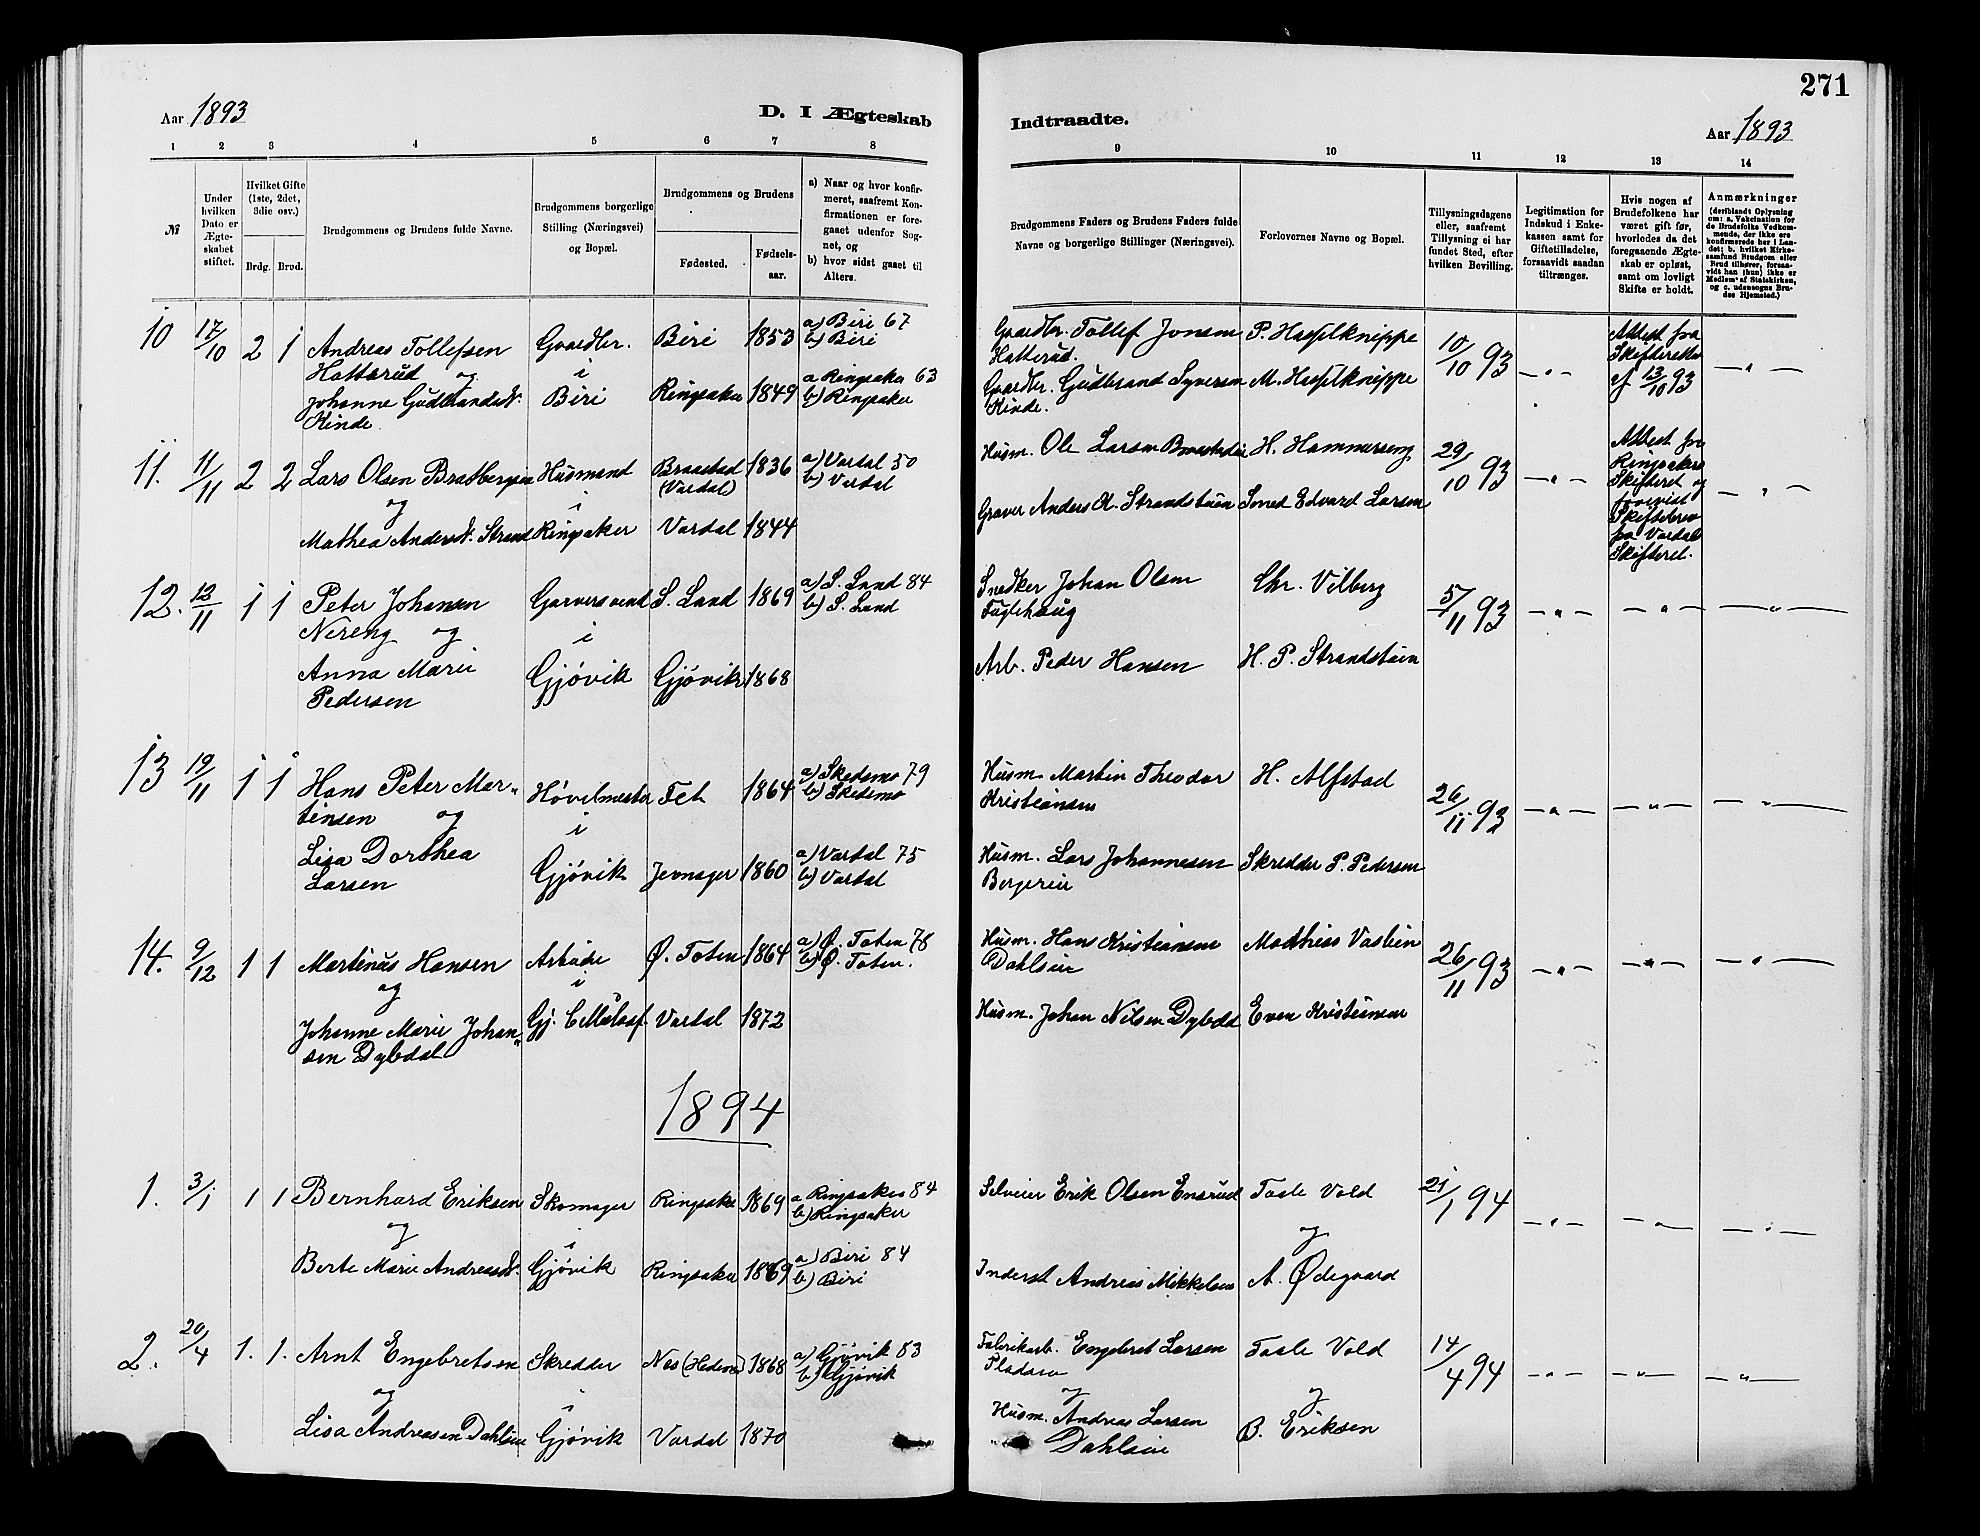 271
Aar 1893
D. I Ægteskab
Indtraadte.
Aar 1893
1 2 3 4 5 6 7 8
9 10 11 12 13 14
№
Under hvilken Dato er Ægteskabet stiftet.
Hvilket Gifte (1ste, 2det, 3die osv.)
Brdg. Brud.
Brudgommens og Brudens fulde Navne.
Brudgommens borgerlige Stilling (Næringsvei) og Bopæl.
Brudgommens og Brudens
Fødested.
Fødsels-aar.
a) Naar og hvor konfirmeret, saafremt Konfirmationen er foregaaet udenfor Sognet, og
b) hvor sidst gaaet til Alters.
Brudgommens Faders og Brudens Faders fulde Navne og borgerlige Stillinger (Næringsvei).
Forlovernes Navne og Bopæl.
Tillysningsdagene eller, saafremt Tillysning ei har fundet Sted, efter hvilken Bevilling.
Legitimation for Indskud i Enkekassen samt for Giftetilladelse, forsaavidt saadan tiltrænges.
Hvis nogen af Brudefolkene har været gift før, hvorledes da det foregaaende Ægteskab er opløst, samt om lovligt Skifte er holdt.
Anmærkninger
(deriblandt Oplysning om: a. Vakcination for de Brudefolks Vedkommende, der ikke ere konfirmerede her i Landet; b. hvilket Kirkesamfund Brudgom eller Brud tilhører, forsaavidt han (hun) ikke er Medlem af Statskirken, og c. udensogns Brudes Hjemsted.)
10 17/10 2 1 Andreas Tollefsen Gaardbr. Biri 1853 a) Biri 67
b) Biri
Hatterud og i
Johanne Gudbrandsd. Biri Ringsaker 1849 a Ringsaker 63
b) Ringsaker
Kinde.
Gaardbr. Tollef Jonsen P. Hasselknippe 10/10 93 — " —
Hatterud.
Gaardbr. Gudbrand Syversen M. Hasselknippe
Kinde.
Attest fra
Skifteretten
af 13/10 93
— " —
11. 11/11 2 2 Lars Olsen Bratbergen Husmand Braastad 1836 a) Vardal 50
(Vardal) b) Vardal
og i
Mathea Andersd. Strand Ringsaker Vardal 1844
Husm. Ole Larsen H. Hammerseng 29/10 93 — " —
Graver Anders A. Strandstuen Smed Edvard Larsen
Attest fra
Ringsakers
Skifteret og
forevist
Skiftebrev
fra Vardal
Skifteret.
— " —
12. 12/11 1 1 Peter Johansen Garversvend S. Land 1869 a) S. Land 84
b) S. Land
Nereng og i
Anna Marie Gjøvik Gjøvik 1868
Pedersen
Snedker Johan Olsen Chr. Vilberg 5/11 93 — " — — " — — " —
Fuglehaug
Arb. Peder Hansen H. P. Strandstuen
13 19/11 1 1 Hans Peter Mar- Høvelmester Fet 1864 a) Skedsmo 79
b) Skedsmo
tinsen og i
Lisa Dorthea Gjøvik Jevnager 1860 a) Vardal 75
b) Vardal
Larsen
Husm. Martin Theodor H. Alfstad 26/11 93 — " — — " — — " —
Kristiansen
Husm. Lars Johannesen Skredder P. Pedersen
Bergereie
14. 9/12 1 1 Martinus Hansen Arbeider Ø. Toten 1864 a) Ø. Toten 78
b) Ø. Toten.
og i
Johanne Marie Johan- Gj. Vardal 1872
sen Dybdal
Husm. Hans Kristiansen Mathias Vaslien 26/11 93 — " — — " — — " —
Dahlseie
Husm. Johan Nilsen Dybdal Even Kristiansen
1894
1. 3/1 1 1 Bernhard Eriksen Skomager Ringsaker 1869 a Ringsaker 84
b) Ringsaker
og i
Berte Marie Andreasd. Gjøvik Ringsaker 1869 a) Biri 84
b) Biri
Selveier Erik Olsen Ensrud Taale Vold 21/1 94 — " — — " — — " —
og
Inderst Andreas Mikkelsen A. Ødegaard
2. 20/4 1. 1. Arnt Engebretsen Skredder Nes (Hedem) 1868 a) Gjøvik 83
b) Gjøvik
og i
Lisa Andreasen Dahlseie Gjøvik Vardal 1870
Fabrikarb. Engebret Larsen Taale Vold 14/4 94 — " — — " — — " —
og og
Husm. Andreas Larsen B. Eriksen
Dahlseie